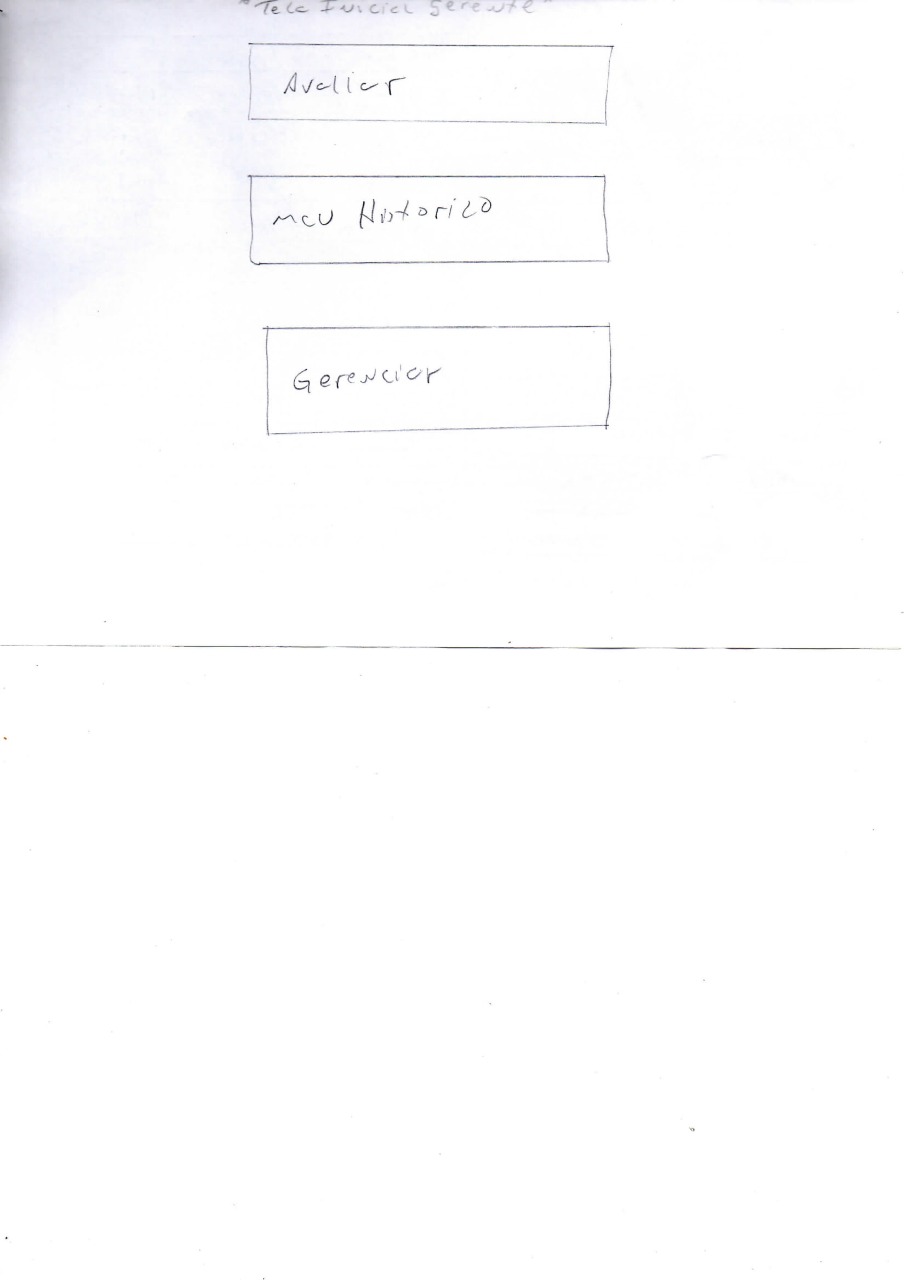 "Tela Inicial Gerente"
Avaliar
meu Historico
Gerenciar